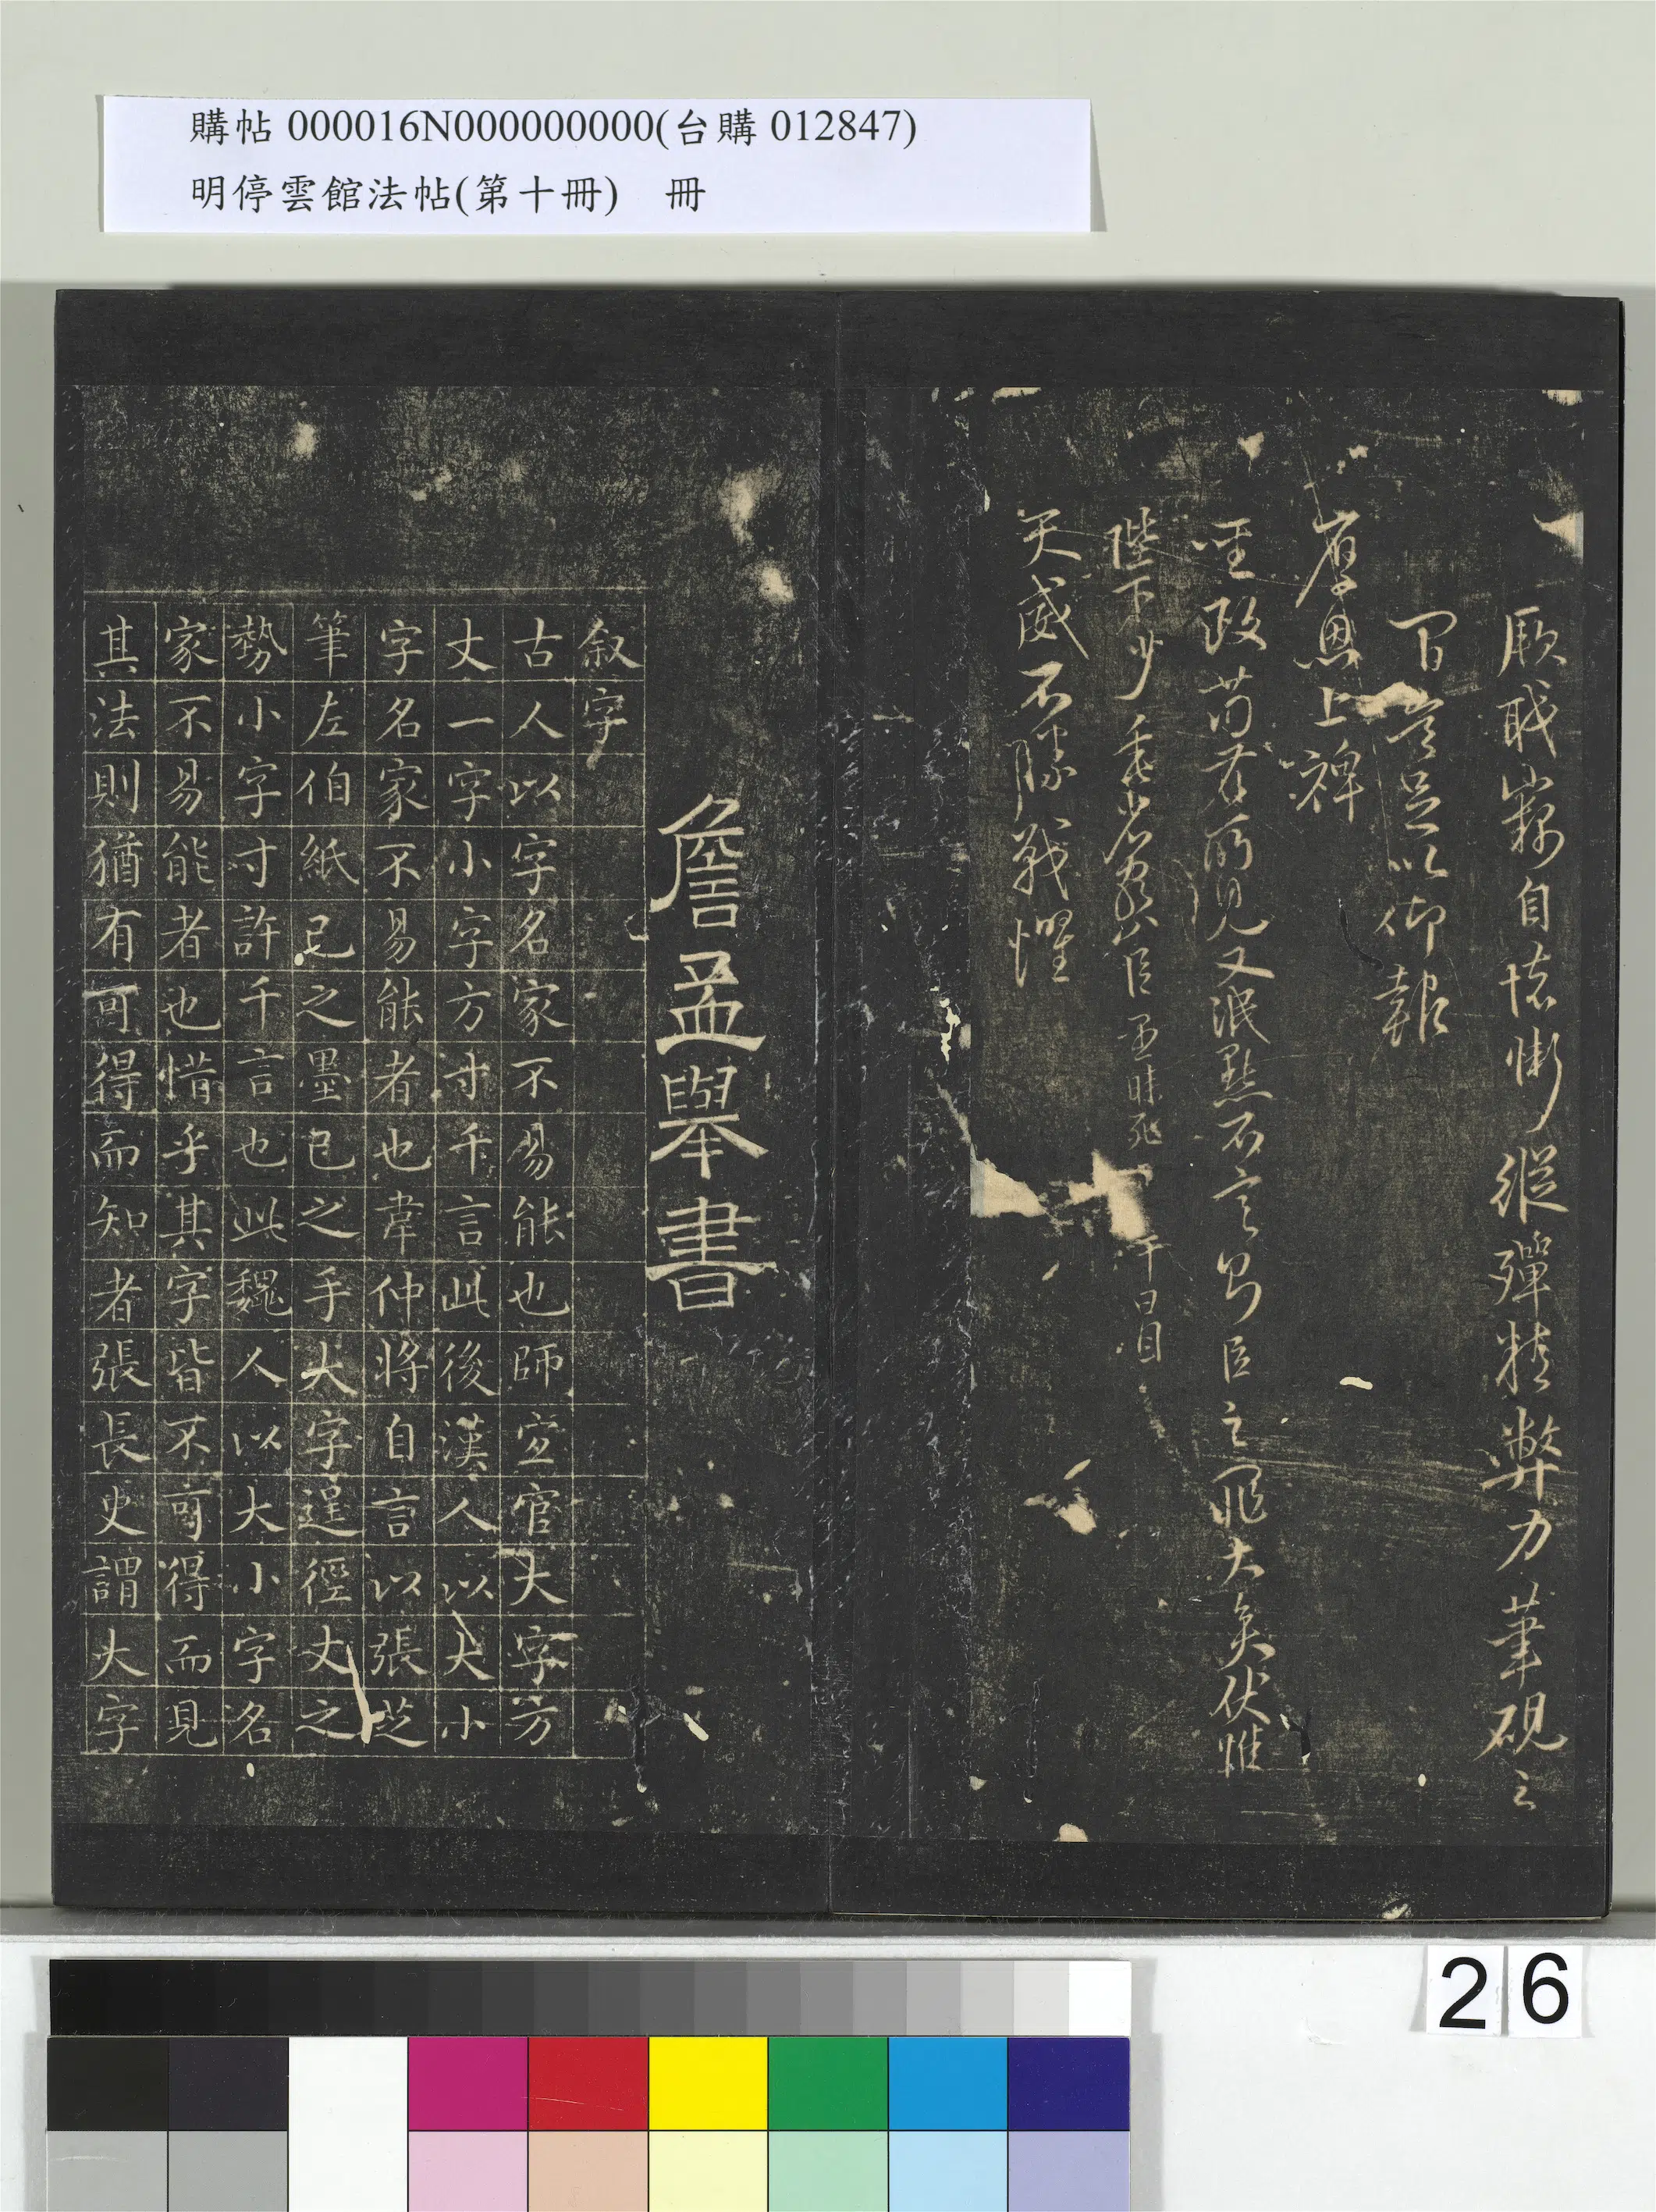 購帖 000016N000000000(台購 012847)
明停雲館法帖(第十冊)　冊
厥職竊自怯慚縱殫精弊力筆硯之
間豈足以仰報
厚恩上裨
聖政苟若所見又泯默不言即臣之罪大矣伏惟
陛下少垂
天威不勝戰懼
詹孟舉書
叙字
古人以字名家不易能也師宜官大字方
丈一字小字方寸千言此後漢人以大小
字名家不易能者也韋仲將自言以張芝
筆左伯紙己之墨己之手大字逞徑丈之
勢小字寸許千言也此魏人以大小字名
家不易能者也惜乎其字皆不可得而見
其法則猶有可得而知者張長史謂大字
26